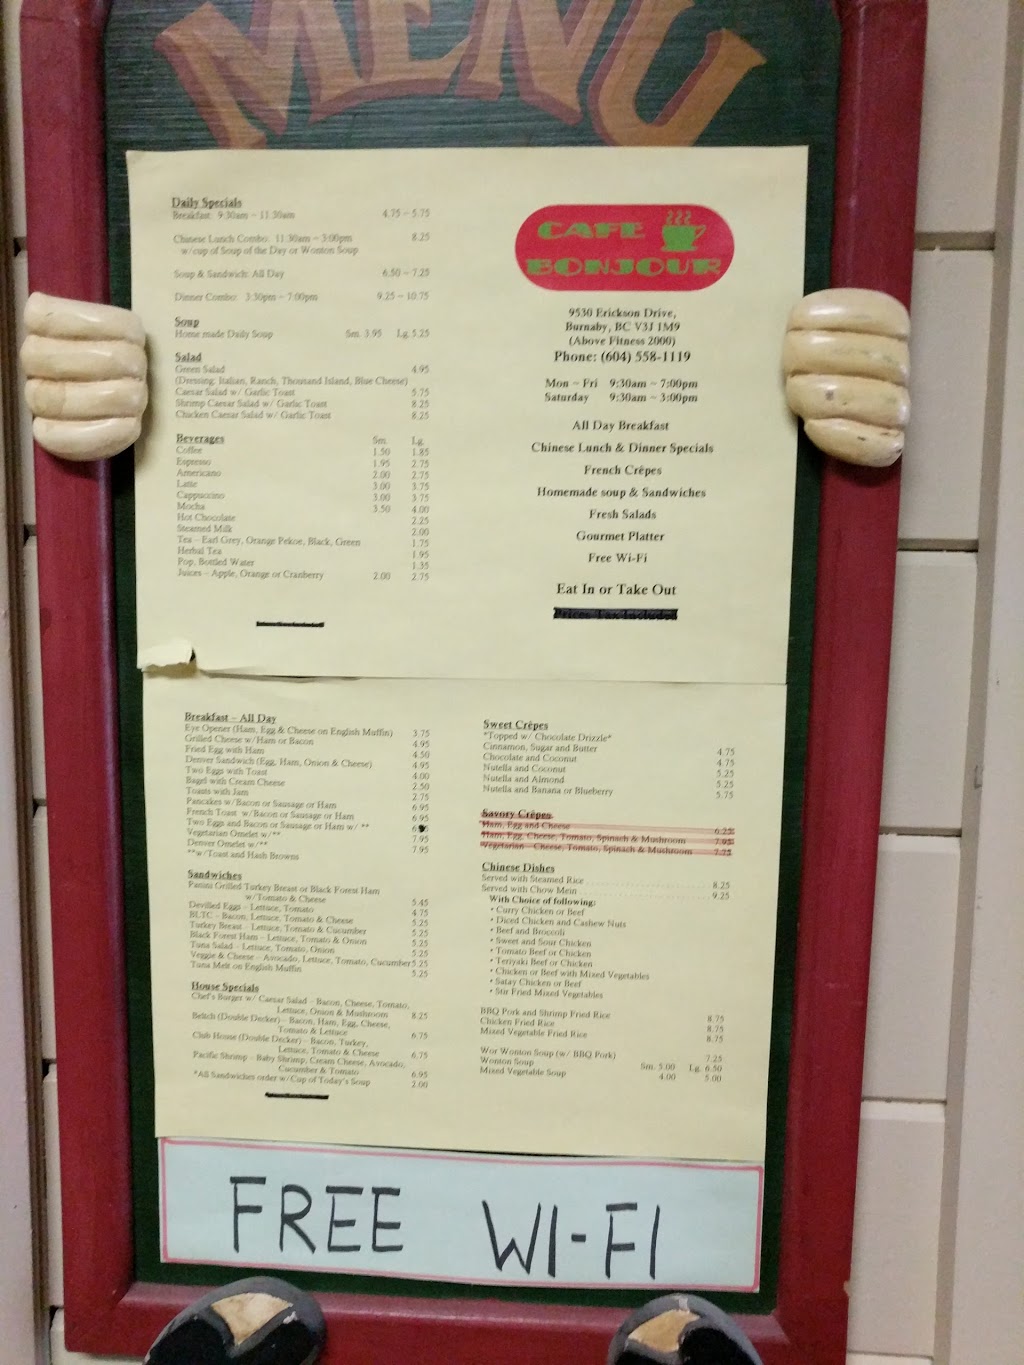 MENU
Daily Specials
Breakfast: 9:30am ~ 11:30am 4.75 ~ 5.75
Chinese Lunch Combo: 11:30am ~ 3:00pm 8.25
w/cup of Soup of the Day or Wonton Soup
Soup & Sandwich: All Day 6.50 ~ 7.25
Dinner Combo: 3:30pm ~ 7:00pm 9.25 ~ 10.75
Soup
Home made Daily Soup Sm. 3.95 Lg. 5.25
Salad
Green Salad 4.95
(Dressing: Italian, Ranch, Thousand Island, Blue Cheese)
Caesar Salad w/ Garlic Toast 5.75
Shrimp Caesar Salad w/ Garlic Toast 8.25
Chicken Caesar Salad w/ Garlic Toast 8.25
Beverages Sm. Lg.
Coffee 1.50 1.85
Espresso 1.95 2.75
Americano 2.00 2.75
Latte 3.00 3.75
Cappuccino 3.00 3.75
Mocha 3.50 4.00
Hot Chocolate 2.25
Steamed Milk 2.00
Tea ~ Earl Grey, Orange Pekoe, Black, Green 1.75
Herbal Tea 1.95
Pop, Bottled Water 1.35
Juices ~ Apple, Orange or Cranberry 2.00 2.75
CAFE
BONJOUR
9530 Erickson Drive,
Burnaby, BC V3J 1M9
(Above Fitness 2000)
Phone: (604) 558-1119
Mon ~ Fri 9:30am ~ 7:00pm
Saturday 9:30am ~ 3:00pm
All Day Breakfast
Chinese Lunch & Dinner Specials
French Crêpes
Homemade soup & Sandwiches
Fresh Salads
Gourmet Platter
Free Wi-Fi
Eat In or Take Out
Prices Tax Included
Breakfast ~ All Day
Eye Opener (Ham, Egg & Cheese on English Muffin) 3.75
Grilled Cheese w/Ham or Bacon 4.95
Fried Egg with Ham 4.50
Denver Sandwich (Egg, Ham, Onion & Cheese) 4.95
Two Eggs with Toast 4.00
Bagel with Cream Cheese 2.50
Toasts with Jam 2.75
Pancakes w/Bacon or Sausage or Ham 6.95
French Toast w/Bacon or Sausage or Ham 6.95
Two Eggs and Bacon or Sausage or Ham w/ **
Vegetarian Omelet w/** 7.95
Denver Omelet w/** 7.95
**w/Toast and Hash Browns
Sandwiches
Panini Grilled Turkey Breast or Black Forest Ham
w/Tomato & Cheese 5.45
Devilled Eggs ~ Lettuce, Tomato 4.75
BLTC ~ Bacon, Lettuce, Tomato & Cheese 5.25
Turkey Breast ~ Lettuce, Tomato & Cucumber 5.25
Black Forest Ham ~ Lettuce, Tomato & Onion 5.25
Tuna Salad ~ Lettuce, Tomato, Onion 5.25
Veggie & Cheese ~ Avocado, Lettuce, Tomato, Cucumber 5.25
Tuna Melt on English Muffin 5.25
House Specials
Chef's Burger w/ Caesar Salad ~ Bacon, Cheese, Tomato,
Lettuce, Onion & Mushroom 8.25
Beltch (Double Decker) ~ Bacon, Ham, Egg, Cheese,
Tomato & Lettuce 6.75
Club House (Double Decker) ~ Bacon, Turkey,
Lettuce, Tomato & Cheese 6.75
Pacific Shrimp ~ Baby Shrimp, Cream Cheese, Avocado,
Cucumber & Tomato 6.95
*All Sandwiches order w/Cup of Today's Soup 2.00
Sweet Crêpes
*Topped w/ Chocolate Drizzle*
Cinnamon, Sugar and Butter 4.75
Chocolate and Coconut 4.75
Nutella and Coconut 5.25
Nutella and Almond 5.25
Nutella and Banana or Blueberry 5.75
Savory Crêpes
Ham, Egg and Cheese 6.25
Ham, Egg, Cheese, Tomato, Spinach & Mushroom 7.95
Vegetarian ~ Cheese, Tomato, Spinach & Mushroom 7.75
Chinese Dishes
Served with Steamed Rice 8.25
Served with Chow Mein 9.25
With Choice of following:
• Curry Chicken or Beef
• Diced Chicken and Cashew Nuts
• Beef and Broccoli
• Sweet and Sour Chicken
• Tomato Beef or Chicken
• Teriyaki Beef or Chicken
• Chicken or Beef with Mixed Vegetables
• Satay Chicken or Beef
• Stir Fried Mixed Vegetables
BBQ Pork and Shrimp Fried Rice 8.75
Chicken Fried Rice 8.75
Mixed Vegetable Fried Rice 8.75
Wor Wonton Soup (w/ BBQ Pork) 7.25
Wonton Soup Sm. 5.00 Lg. 6.50
Mixed Vegetable Soup 4.00 5.00
FREE WI-FI